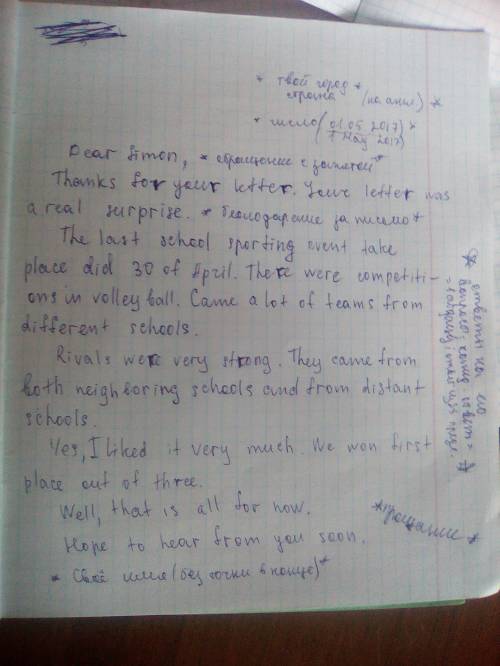 * твой город *
страна (на англ) *
* число (01.05.2017) *
1 May 2017
Dear Simon, * обращение с запятой *
Thanks for your letter. Your letter was
a real surprise. * благодарение за письмо *
The last school sporting event take
place did 30 of April. There were competiti-
ons in volleyball. Came a lot of teams from
different schools.
Rivals were very strong. They came from
both neighboring schools and from distant
schools.
Yes, I liked it very much. We won first
place out of three.
Well, that is all for now.
Hope to hear from you soon.
* Своё имя (без точки в конце) *
* ответы на его
* прощание *